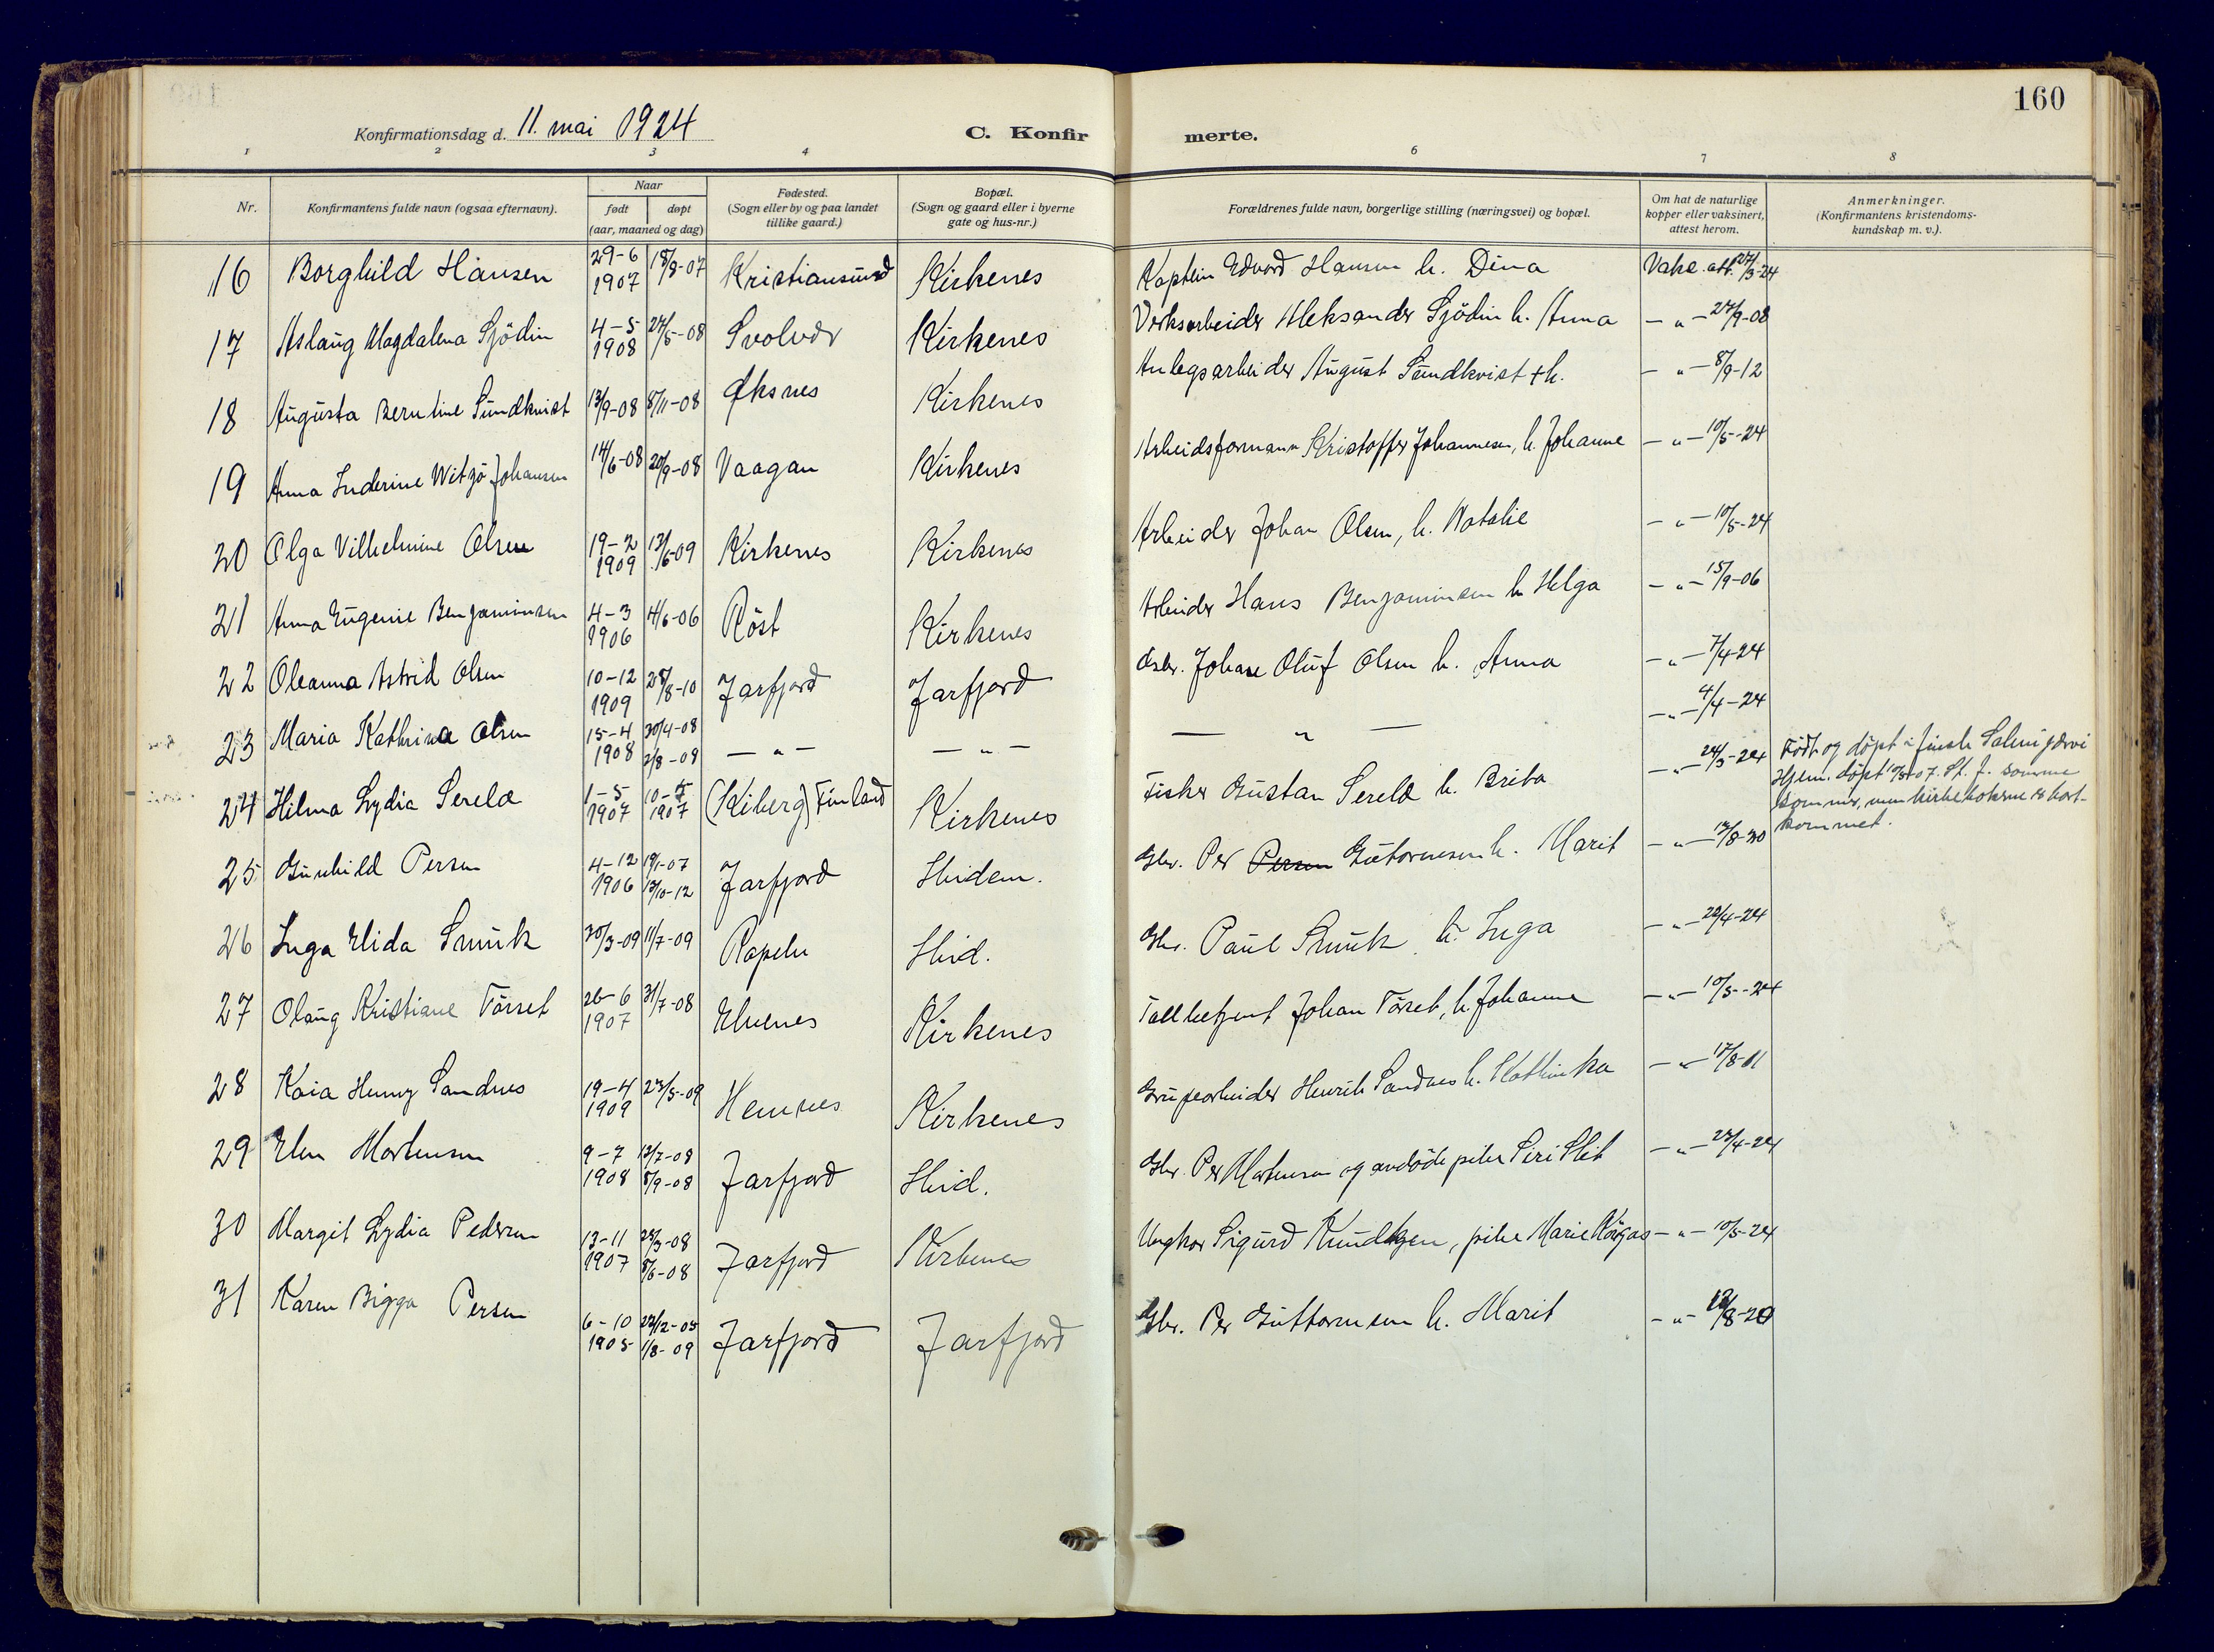 160
Konfirmationsdag d. 11. mai 1924
C. Konfir merte.
1 2 3 4 5 6 7 8
Nr.
Konfirmantens fulde navn (ogsaa efternavn).
Naar
født døpt
(aar, maaned og dag)
Fødested.
(Sogn eller by og paa landet
tillike gaard.)
Bopæl.
(Sogn og gaard eller i byerne
gate og hus-nr.)
Forældrenes fulde navn, borgerlige stilling (næringsvei) og bopæl.
Om hat de naturlige
kopper eller vaksinert,
attest herom.
Anmerkninger.
(Konfirmantens kristendoms-
kundskap m. v.).
16 Borghild Hansen 29-6 1907 18/8-07 Kristiansund Kirkenes Kaptein Edvard Hansen h. Dina Vakc. att. 27/3-24
17 Aslaug Magdalena Sjödin 4-5 1908 27/5-08 Svolvær Kirkenes Verksarbeider Aleksander Sjödin h. Anna -"- 27/9-08
18 Augusta Berntine Sundkvist 13/9-08 8/11-08 Øksnes Kirkenes Anlegsarbeider August Sundkvist + h. -"- 8/9-12
19 Anna Inderine Witzö Johansen 14/6-08 20/9-08 Vaagan Kirkenes Arbeidsformann Kristoffer Johannesen, h. Johanne -"- 10/5-24
20 Olga Vilhelmine Olsen 19-2 1909 13/6-09 Kirkenes Kirkenes Arbeider Johan Olsen, h. Natalie -"- 10/5-24
21 Anna Eugenie Benjaminsen 4-3 1906 4/6-06 Röst Kirkenes Arbeider Hans Benjaminsen h. Helga -"- 15/9-06
22 Oleanna Astrid Olsen 10-12 1909 28/8-10 Jarfjord Jarfjord Gbr. Johan Oluf Olsen h. Anna -"- 7/4-24
23 Maria Kathrina Olsen 15-4 1908 30/4-08 2/8-08 -"- -"- -"- -"- 4/4-24
24 Hilma Lydia Serelæ 1-5 1907 10-5 1907 (Kiberg) Finland Kirkenes Fisker Gustav Serelæ h. Brita -"- 24/3-24 Født og døpt i finsk Salmijærvi
Hjem. døpt 10/5-07. St. f. samme
sommer, men kirkebøkerne er bort-
kommet.
25 Gunhild Persen 4-12 1906 19/1-07 13/10-12 Jarfjord Ibidem. Gbr. Per Persen Gutormsen h. Marit -"- 13/8-20
26 Inga Elida Smuk 30/3-09 11/7-09 Ropelv Ibid. Gbr. Paul Smuk. h. Inga -"- 22/4-24
27 Olaug Kristiane Törset 26-6 1907 31/7-08 Elvenes Kirkenes Tollbetjent Johan Törset, h. Johanne -"- 10/5-24
28 Kaia Henny Sandnes 19-4 1909 23/5-09 Hemnes Kirkenes Grubearbeider Henrik Sandnes h. Kathinka -"- 17/8-11
29 Elen Mortensen 9-7 1908 13/7-08 8/9-08 Jarfjord Ibid. Gbr. Per Mortensen og avdöde pike Siri Slit -"- 23/4-24
30 Margit Lydia Pedersen 13-11 1907 25/3-08 8/6-08 Jarfjord Kirkenes Ungkar Sigurd Knudtzen, pike Marie Körgas -"- 10/5-24
31 Karen Bigga Persen 6-10 1905 22/12-05 1/8-09 Jarfjord Jarfjord Gbr. Per Guttormsen h. Marit -"- 13/8-20